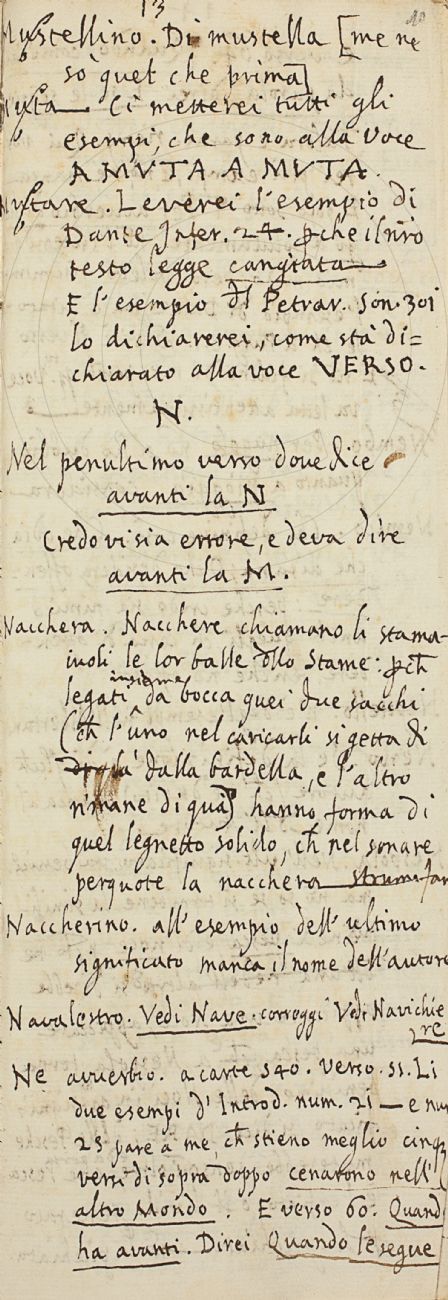 13
Mustellino. Di mustella [me ne
so quel che prima]
Muta — Ci metterei tutti gli
esempi, che sono alla voce
A MVTA A MVTA.
Mutare. Leverei l'esempio di
Dante Infer. 24. ꝑche il nr̄o
testo legge cangiata —
E l'esempio dl Petrar. son. 301
lo dichiarerei, come sta di=
chiarato alla voce VERSO.
N.
Nel penultimo verso dove dice
avanti la N
Credo vi sia errore, e deva dire
avanti la M.
Nacchera. Nacchere chiamano li stama-
iuoli le lor balle dllo stame: ꝑch̄
legati insieme da bocca quei due sacchi
(ch̄ l'uno nel caricarli si getta di
di là dalla bardella, e l'altro
rimane di quà) hanno forma di
quel legnetto solido, ch̄ nel sonare
perquote la nacchera
Naccherino. all'esempio dell' ultimo
significato manca il nome dell'autore
Navalestro. Vedi Nave. correggi Vedi Navichie
re
Ne avverbio. a carte 540. verso. 55. Li
due esempi d' Introd. num. 21 — e num
25 pare a me, ch̄ stieno meglio cinqꝫ
versi di sopra doppo cenarono nell'
altro Mondo. E verso 60: Quand
ha avanti. Direi Quando le segue